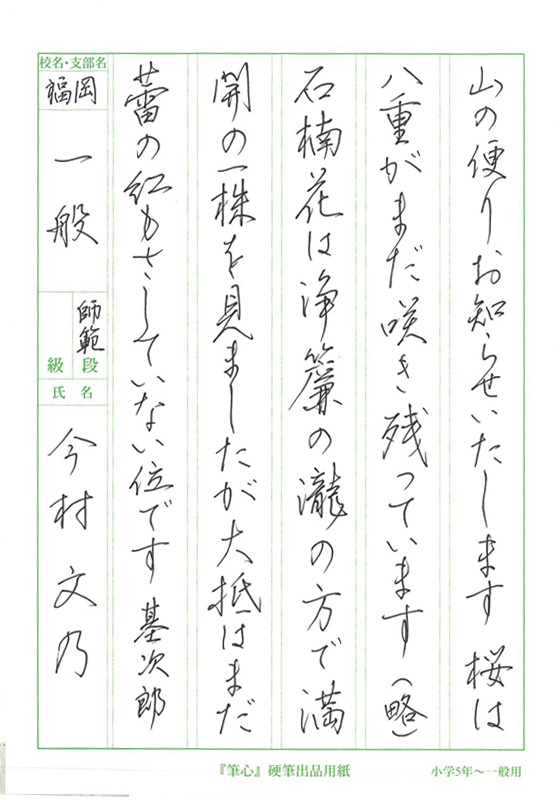 山の便りお知らせいたします 桜は
八重がまだ咲き残っています(略)
石楠花は浄簾の瀧の方で満
開の一株を見ましたが大抵はまだ
蕾の紅もさしていない位です 基次郎
校名・支部名
福岡
一般
師範
級 段
氏名
今村文乃
『筆心』硬筆出品用紙
小学5年~一般用